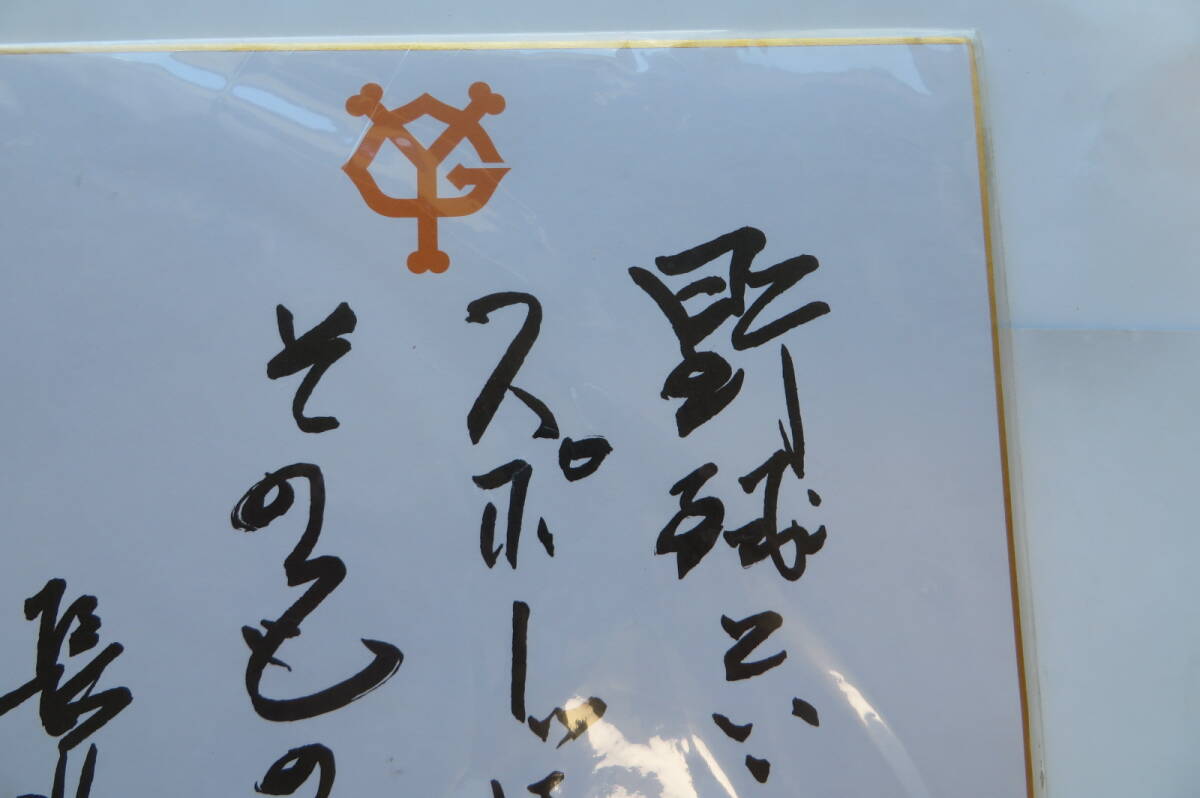 YG
野球とい
スポーツは
そのもの
長